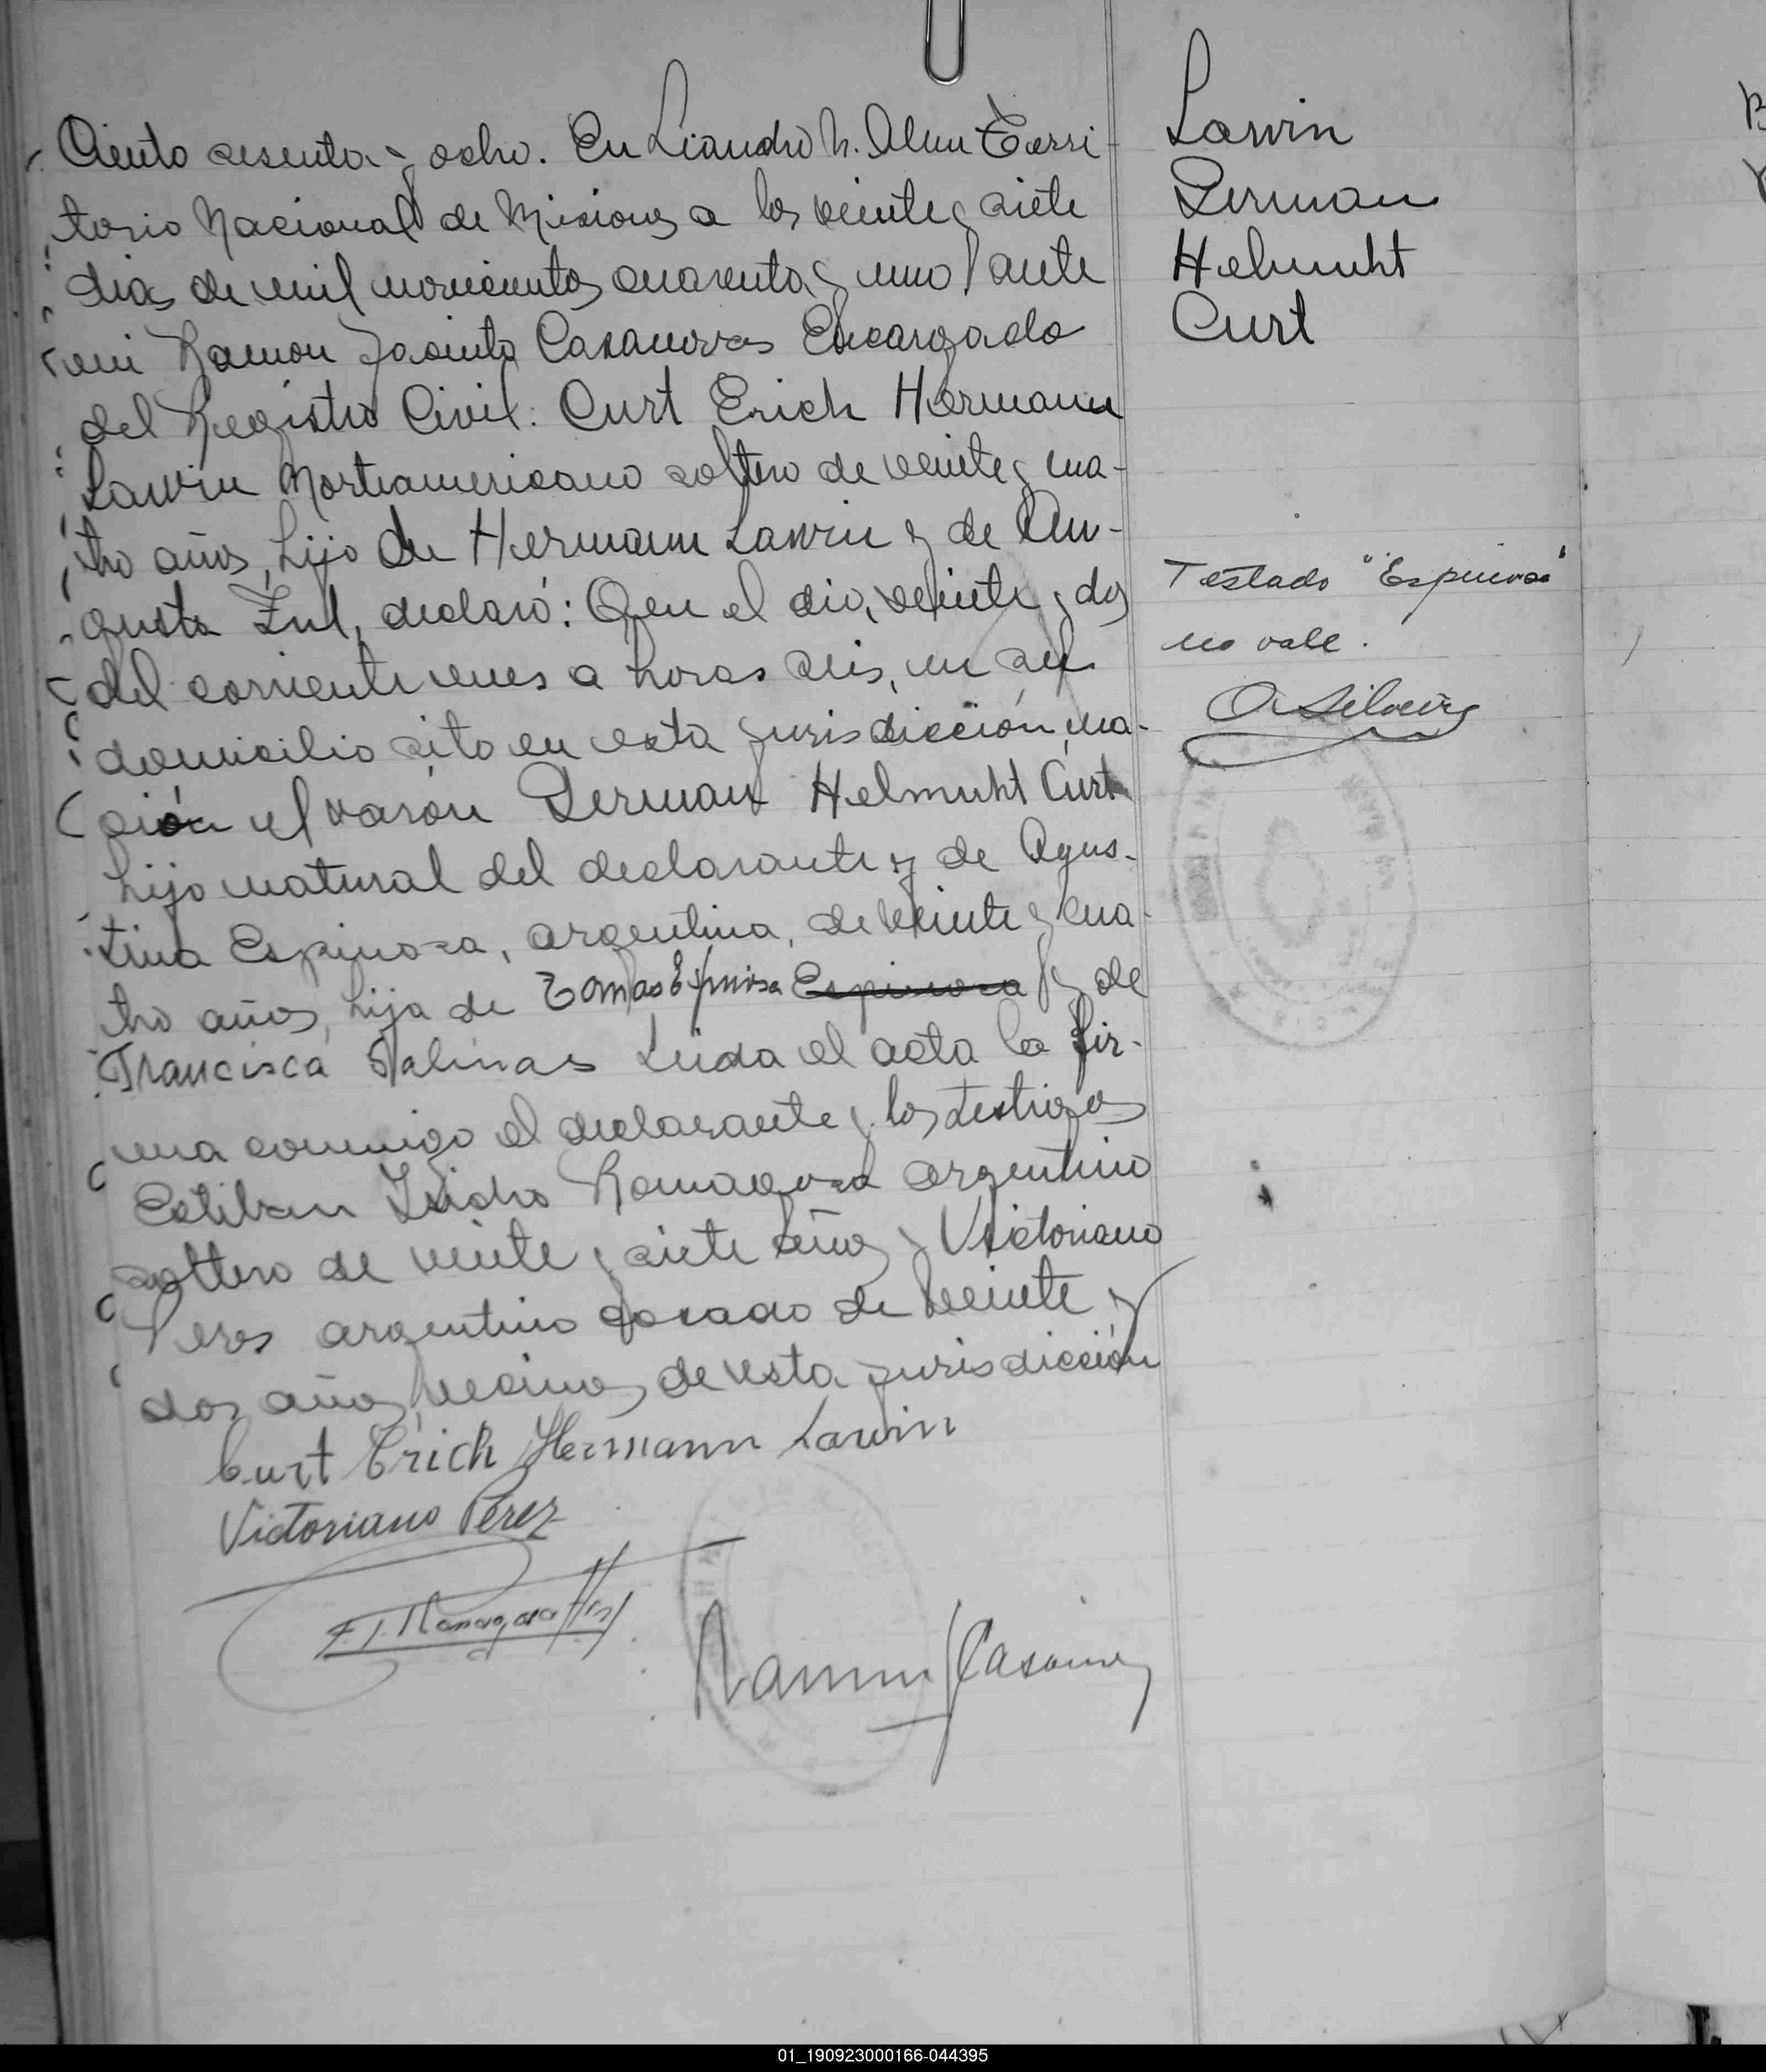 Ciento sesenta y ocho. En Leandro N. Alem Terri-
torio Nacional de Misiones a los veinte y siete
dias de mil novecientos cuarenta y uno, ante
mi Ramon Jacinto Casanovas Encargado
del Registro Civil: Curt Erich Hermann
Lawin Norteamericano soltero de veinte y cua-
tro años, hijo de Hermann Lawin y de Au-
gusta Zul, declaró: Qen el dia, veinte y dos
del corriente mes a horas seis, en su
domicilio sito en esta jurisdicción, na-
ción el varón German Helmuht Curt
hijo natural del declarante y de Agus-
tina Espinoza, argentina, de veinte y cua-
tro años, hija de Tomas Espinosa Espinoza y de
Francisca Salinas Leida el acta la fir-
ma conmigo el declarante y los testigos
Estiban Isidro Romagosa argentino
soltero de veinte y siete años y Victoriano
Peres argentino casado de veinte y
dos años, vecinos de esta jurisdicción
Curt Erich Hermann Lawin
Victoriano Pérez
E. I. Romagosa
Ramon J Casanovas
Lawin
German
Helmuht
Curt
Testado "Espinosa"
no vale.
01_190923000166-044395